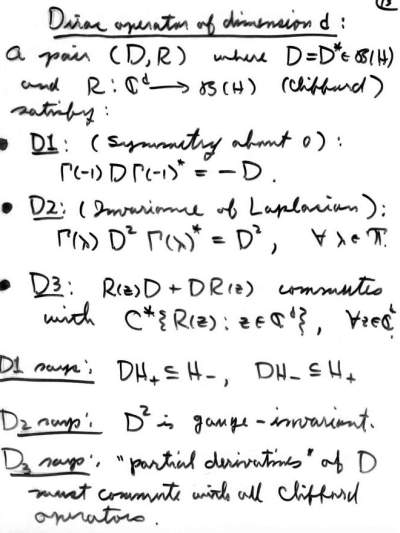 13
Dirac operator of dimension d:
a pair (D, R) where D = D* ∈ B(H)
and R: ℂᵈ → B(H) (Clifford)
satisfy:
• D1: (symmetry about 0):
Γ(-1) D Γ(-1)* = -D.
• D2: (Invariance of Laplacian):
Γ(λ) D² Γ(λ)* = D², ∀ λ ∈ 𝕋.
• D3: R(z)D + DR(z) commutes
with C*{R(z): z ∈ ℂᵈ}, ∀ z ∈ ℂᵈ
D1 says: DH₊ ⊆ H₋, DH₋ ⊆ H₊
D2 says: D² is gauge-invariant.
D3 says: "partial derivatives" of D
must commute with all Clifford
operators.